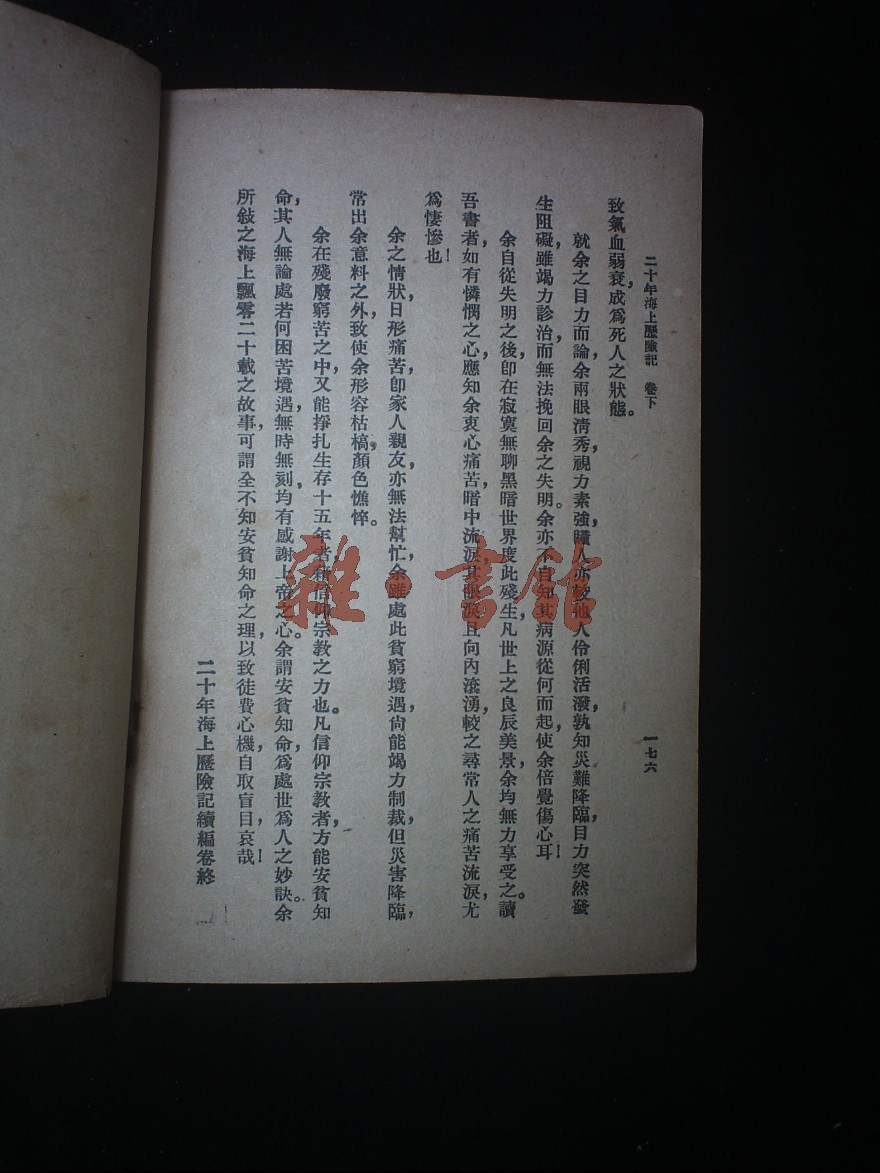 二十年海上歷險記　卷下　一七六
致氣血弱衰，成爲死人之狀態。
就余之目力而論，余兩眼淸秀，視力素強，瞳人亦較他人伶俐活潑，孰知災難降臨，目力突然發
生阻礙，雖竭力診治，而無法挽回余之失明。余亦不自知其病源從何而起，使余倍覺傷心耳！
余自從失明之後，卽在寂寞無聊黑暗世界度此殘生，凡世上之良辰美景，余均無力享受之。讀
吾書者，如有憐憫之心，應知余衷心痛苦，暗中流淚，其眼淚且向內滾湧，較之尋常人之痛苦流淚，尤
爲悽慘也！
余之情狀，日形痛苦，卽家人親友，亦無法幫忙，余雖處此貧窮境遇，尙能竭力制裁，但災害降臨，
常出余意料之外，致使余形容枯槁，顏色憔悴。
余在殘廢窮苦之中，又能掙扎生存十五年者，新信仰宗教之力也。凡信仰宗教者，方能安貧知
命，其人無論處若何困苦境遇，無時無刻，均有感謝上帝之心。余謂安貧知命，爲處世爲人之妙訣。余
所敍之海上飄零二十載之故事，可謂全不知安貧知命之理，以致徒費心機，自取盲目，哀哉！
二十年海上歷險記續編卷終
雜·書館